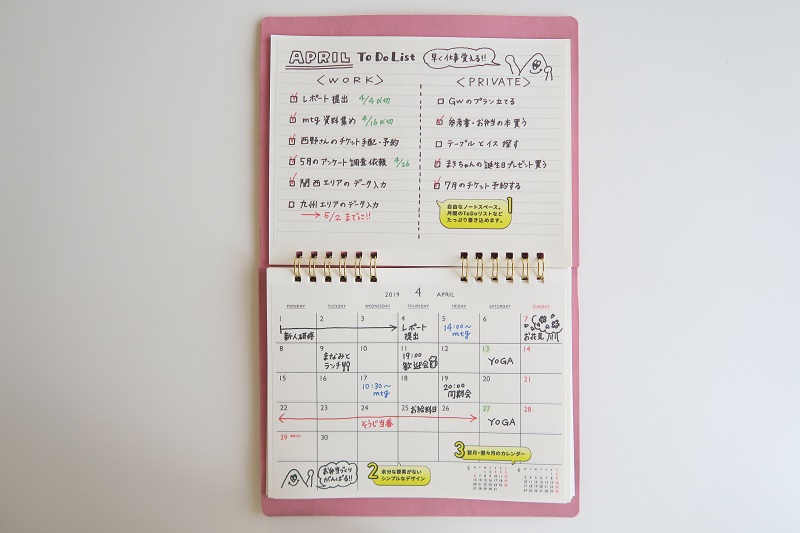 APRIL To Do List
早く仕事覚える!!
<WORK>
レポート提出 4/4〆切
mtg 資料集め 4/16〆切
西野さんのチケット手配・予約
5月のアンケート調査依頼 4/26
関西エリアのデータ入力
九州エリアのデータ入力
→5/2までに!!
<PRIVATE>
GWのプラン立てる
参考書・お弁当の本買う
テーブルとイス探す
まきちゃんの誕生日プレゼント買う
7月のチケット予約する
1
自由なノートスペース。
月間のToDoリストなど
たっぷり書き込めます。
2019 4 APRIL
MONDAY TUESDAY WEDNESDAY THURSDAY FRIDAY SATURDAY SUNDAY
1 2 3 4 5 6 7
新人研修
レポート
提出
14:00〜
mtg
お花見
8 9 10 11 12 13 14
まなみと
ランチ
19:00
歓迎会
YOGA
15 16 17 18 19 20 21
10:30〜
mtg
20:00
同期会
22 23 24 25 26 27 28
お給料日
そうじ当番
YOGA
29 30
お弁当づくり
がんばる!!
2
余分な要素がない
シンプルなデザイン
3
翌月・翌々月のカレンダー
5
6